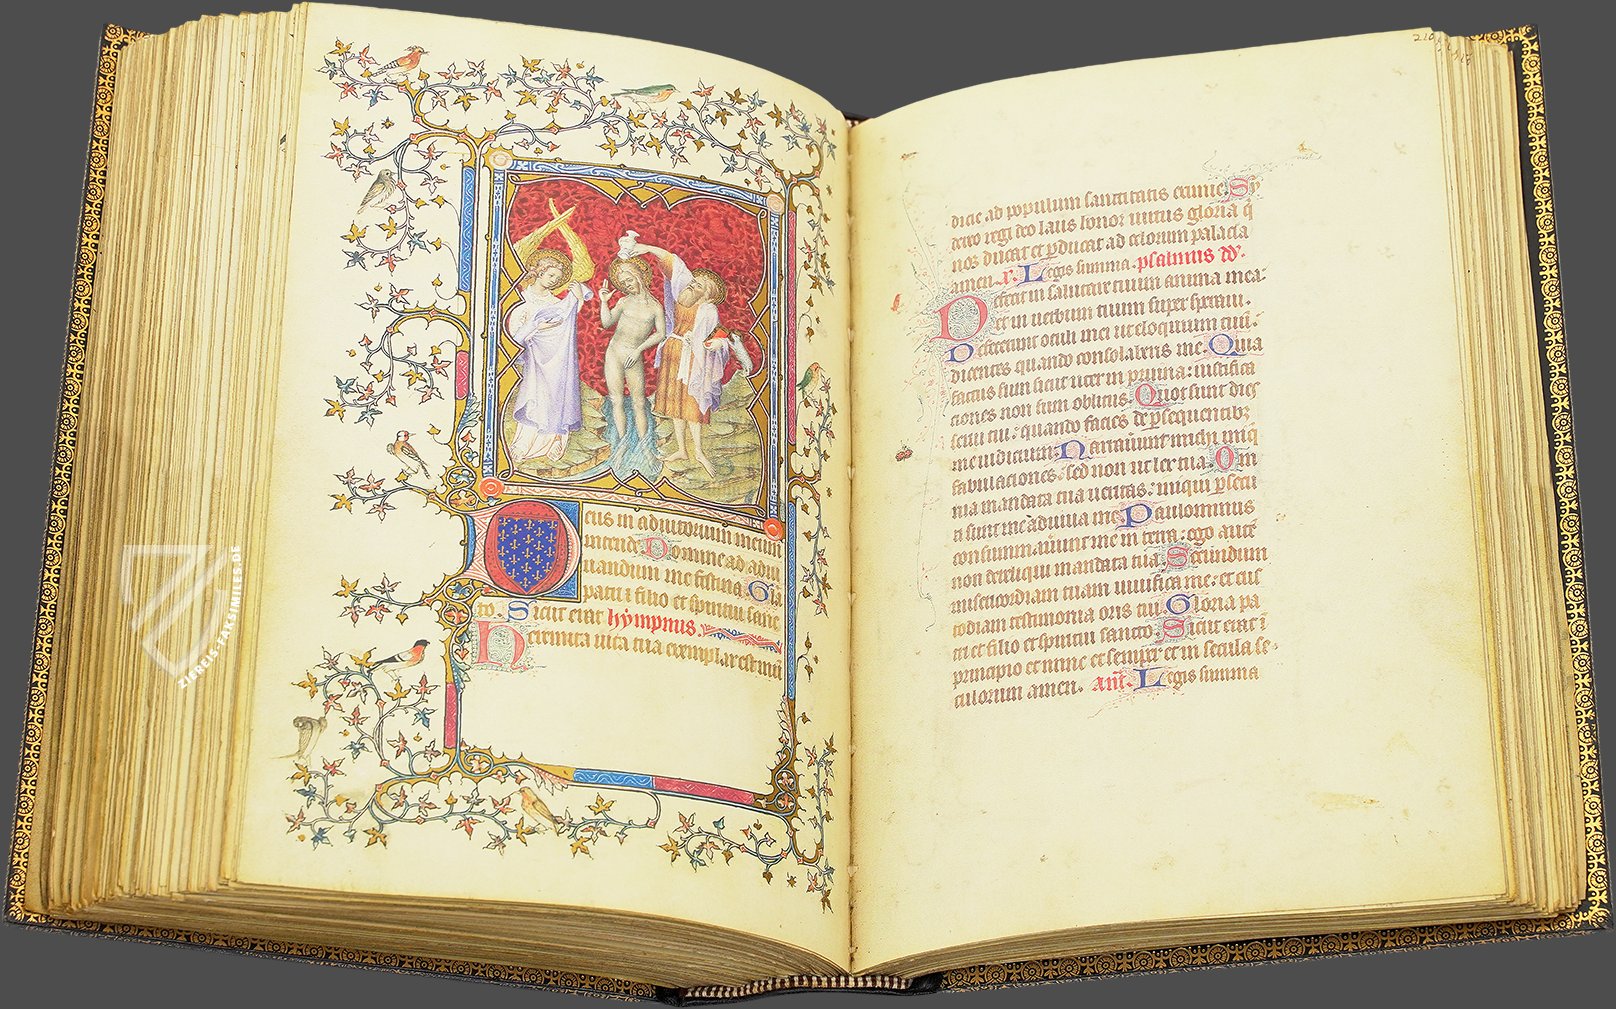 eus in adiutorium meum
intende Domine ad adiu
uandum me festina Gla
patri ⁊ filio et spiritui sanc
to. Sicut erat hympnus.
Heremita uita tua exemplar est mũ
dicie ad populum sanctitatis eximie. Sy
dereo regi deo laus honor uirtus gloria q̃
nos ducat et ꝑducat ad celorum palacia
amen. r. Legis summa. psalmus dd'.
Defecit in salutare tuum anima mea:
et in uerbum tuum super speraui.
Defecerunt oculi mei in eloquium tuũ:
dicentes quando consolaberis me. Quia
factus sum sicut uter in pruina: iustifica
ciones non sum oblitus. Quot sunt dies
serui tui: quando facies de ꝑsequentibꝫ
me iudicium. Narrauerunt michi iniq̃
fabulaciones: sed non ut lex tua. Om
nia mandata tua ueritas: iniqui ꝑsecu
ti sunt me adiuua me. Paulominus
consummauerunt me in terra: ego autẽ
non dereliqui mandata tua. Secundum
misericordiam tuam uiuifica me: et cus
todiam testimonia oris tui. Gloria pa
tri et filio et spiritui sancto. Sicut erat ĩ
principio et nunc et semper et in secula se-
culorum amen. añt. Legis summa
210
ZIEREIS-FAKSIMILES.DE